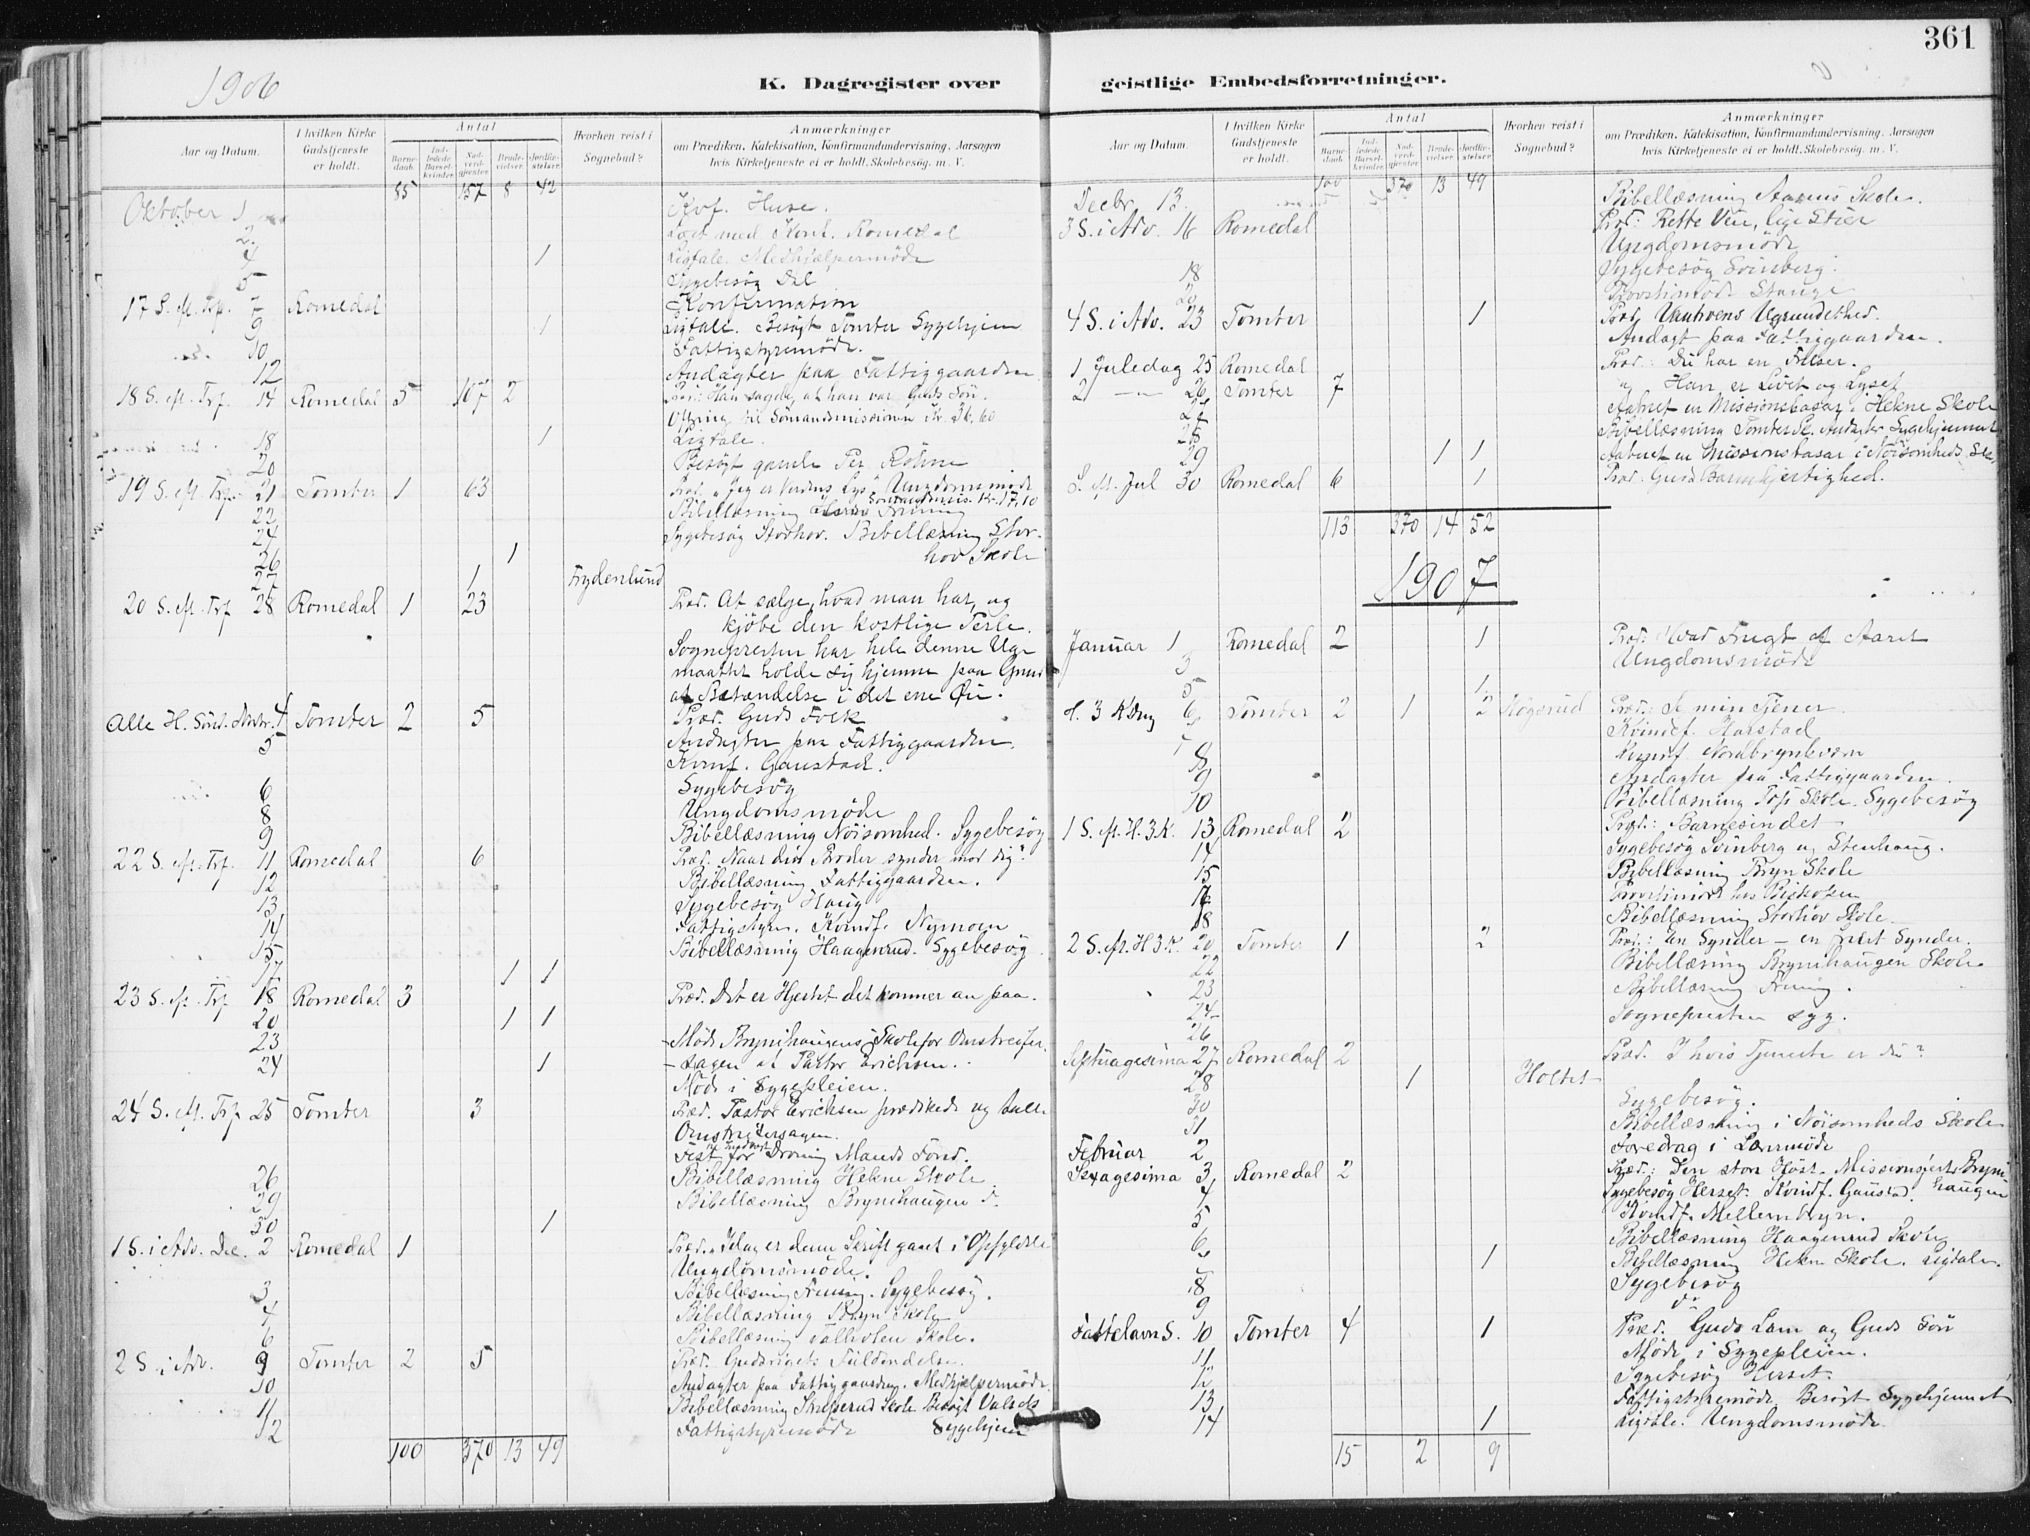 361
1906
K. Dagregister over geistlige Embedsforretninger.
Aar og Datum.
I hvilken Kirke Gudstjeneste er holdt.
Antal
Barnedaab.
Indledede Barselkvinder.
Nadverdgjester.
Brudevielser.
Jordfæstelser.
Hvorhen reist i Sognebud?
Anmærkninger
om Prædiken, Katekisation, Konfirmandundervisning, Aarsagen
hvis Kirketjeneste ei er holdt. Skolebesøg. m. V.
85 157 8 42
Oktober 1 Kvf. Huse.
2
4 1 Ligtale. Medhjælpermøde
5 Sygebesøg Dal
17 S. eft. Trf. 7 Romedal Konfirmation
9 1 Ligtale. Besøgt Tomter Sygehjem
10 Fattigstyremøde.
12 Andagter paa Fattiggaarden
18 S. eft. Trf. 14 Romedal 5 107 2 Præd: Han sagde, at han var Guds Søn.
Ofring til Sømandsmissionen Kr. 36,60
18 1 Ligtale.
20 Besøgt gamle Per
19 S. eft. Trf. 21 Tomter 1 63 Præd. "Jeg er Verdens Lys". Ungdomsmøde
22 Bibellæsning
24 Sygebesøg Storhov. Bibellæsning Storhov Skole
26 1
27 1 Frydenlund
20 S. eft. Trf 28 Romedal 1 23 Præd. At sælge, hvad man har, og
kjøbe den kostlige Perle.
Sognepresten har hele denne Uge
maattet holde sig hjemme paa Grund
af Betændelse i det ene Øie.
Alle H. Sønd. Novbr. 4 Tomter 2 5 Præd. Guds Folk
5 Andagter paa Fattiggaarden.
Kvinf. Gaustad.
6 Sygebesøg
8 Ungdomsmøde
9 Bibellæsning Nøisomhed. Sygebesøg
22 S. eft. Trf. 11 Romedal 6 Præd. "Naar din Broder synder mod dig".
12 Bibellæsning Fattiggaarden.
13 Sygebesøg Haug
14 Fattigstyre. Kvindf. Nymoen
15 Bibellæsning Haagenrud. Sygebesøg
17 1 1
23 S. eft. Trf 18 Romedal 3 Præd. Det er Hjertet det kommer an paa.
20 1 1
23 Møde Brynihaugens Skole for Omstreifer-
24 1 - sagen af Pastor Erichsen.
Møde i Sygepleien.
24 S. eft. Trf 25 Tomter 3 Præd. Pastor Erichsen prædikede og talte
Omstreifersagen.
Fest for Dronning Mauds Fond.
26 Bibellæsning Hekne Skole
29 Bibellæsning Brynihaugen S.
30 1
1 S. i Adv. Dec. 2 Romedal 1 Præd. "Idag er denne Skrift gaaet i Opfyldelse"
Ungdomsmøde.
3 Bibellæsning Frening. Sygebesøg.
4 Bibellæsning Bryn Skole
6 Bibellæsning Skole.
2 S. i Adv. 9 Tomter 2 5 Præd. Gudsrigets Fuldendelse.
10 Andagter paa Fattiggaarden. Medhjælpermøde
11 Bibellæsning Skole Besøgt Valsets
12 Fattigstyremøde Sygehjem
100 370 13 49
Aar og Datum.
I hvilken Kirke Gudstjeneste er holdt.
Antal
Barnedaab.
Indledede Barselkvinder.
Nadverdgjester.
Brudevielser.
Jordfæstelser.
Hvorhen reist i Sognebud?
Anmærkninger
om Prædiken, Katekisation, Konfirmandundervisning, Aarsagen
hvis Kirketjeneste ei er holdt. Skolebesøg. m. V.
100 370 13 49
Decbr. 13 Bibellæsning Aasens Skole.
3 S. i Adv. 16 Romedal Præd: Rette Veie, lige Stier
Ungdomsmøde
18 Sygebesøg Svenberg.
20 Provstimøde Stange
4 S. i Adv. 23 Tomter 1 Præd. Vantroens Ugrundethed.
Andagt paa Fattiggaarden.
1 Juledag 25 Romedal Præd: Du har en Frelser.
2 — 26 Tomter 7 " Han er Livet og Lyset
27 Aabnet en Missionsbasar i Hekne Skole
28 Bibellæsning Tomter Sk. Andagter Sygehjemmet
29 1 1 Aabnet en Missionsbasar i Nøisomheds Sk.
S. eft. Jul 30 Romedal 6 1 Præd: Guds Barmhjertighed.
113 370 14 52
1907
Januar 1 Romedal 2 1 Præd: Hvad Frugt af Aaret
3 Ungdomsmøde
5 1
H. 3 K Dag 6 Tomter 2 1 2 Høgsrud Præd: Se min Tjener
7 Kvindef. Harstad
8 Kvindf
9 Andagter paa Fattiggaarden.
10 Bibellæsning Skole. Sygebesøg
1 S. eft. H. 3 K. 13 Romedal 2 Præd: Barnesindet
14 Sygebesøg Svenberg og Stenhaug.
15 Bibellæsning Bryn Skole
17 Provstimøde hos Biskopen
18 Bibellæsning Storhov Skole.
2 S. eft. H 3 K. 20 Tomter 1 2 Præd.: En Synder — en frelst Synder.
22 Bibellæsning Brynihaugen Skole
23 Bibellæsning Frening.
24 Sognepresten syg.
26
Septuagesima 27 Romedal 2 Præd. I hvis Tjeneste er du?
28 1 Holtet
30 Sygebesøg.
31 Bibellæsning i Nøisomheds Skole
Februar 2 Foredrag i Læremøde
Sexagesima 3 Romedal 2 Præd.: Den store Høst. Missionsfest Brynihaugen
4 Sygebesøg Herset. Kvindf. Gaustad.
5 Kvindf. Mellem Bryn.
6 Bibellæsning Haagenrud Skole
7 1 Bibellæsning Hekne Skole. Ligtale.
8 Sygebesøg
9 do
Fastelavns S. 10 Tomter 4 1 Præd. Guds Lam og Guds Søn
11 Møde i Sygepleien.
12 Sygebesøg Herset.
13 Fattigstyremøde. Besøgt Sygehjemmet
14 1 Ligtale. Ungdomsmøde
15 2 9